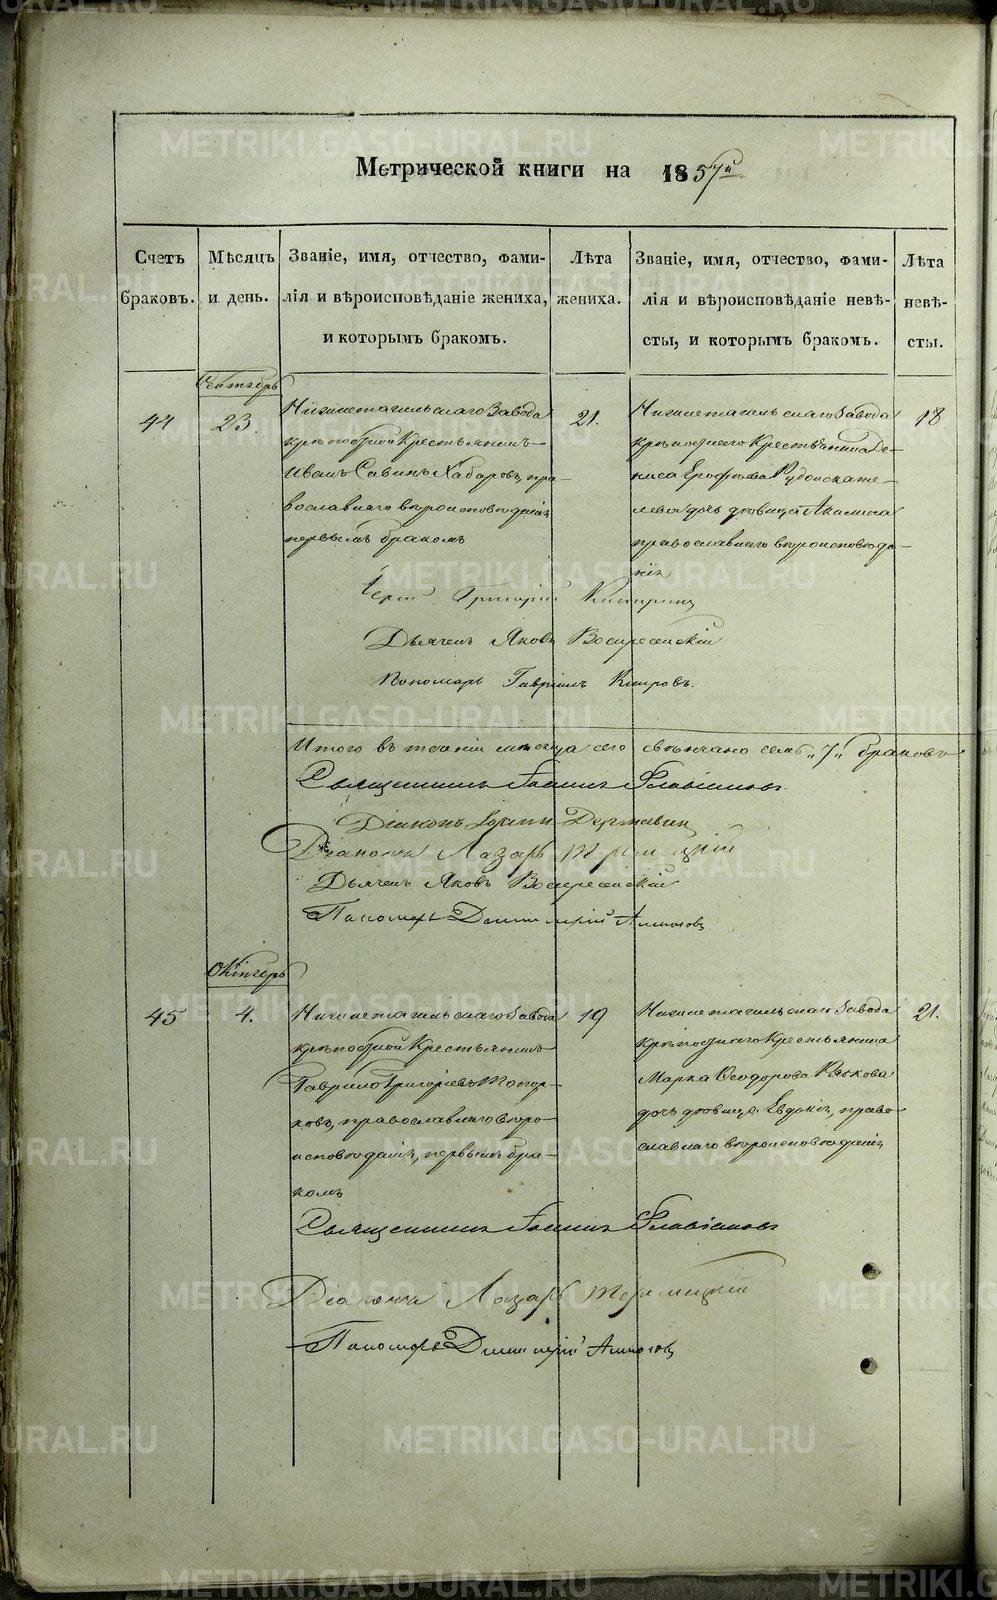 Метрической книги на 1857й
Счетъ браковъ.
Мѣсяцъ и день.
Званіе, имя, отчество, фами-
лія и вѣроисповѣданіе жениха,
и которымъ бракомъ.
Лѣта жениха.
Званіе, имя, отчество, фами-
лія и вѣроисповѣданіе невѣ-
сты, и которымъ бракомъ.
Лѣта невѣ-
сты.
Сентябрь
44
23.
Нижнетагильскаго Завода
крѣпостной Крестьянинъ
Иванъ Савинъ Хабаровъ, пра-
вославнаго вѣроисповѣданія
первымъ бракомъ
21.
Нижнетагильскаго Завода
крѣпостнаго Крестьянина Де-
ниса Ерофѣева Рудоискате-
лева дочь дѣвица Акилина
православнаго вѣроисповѣда-
нія
18
Іерей Григорій
Дьячекъ Яковъ Воскресенскій
Пономарь Гавріилъ Кипровъ.
Итого въ теченіи мѣсяца сего свѣнчано семь „7„ браковъ
Священникъ Іоаннъ Флавіановъ.
Діаконъ Іоаннъ Державин
Діаконъ Лазарь
Дьячекъ Яковъ Воскресенскій
Пономарь Димитрій
Октябрь
45
4.
Нижнетагильскаго Завода
крѣпостной Крестьянинъ
Гаврило Григорьевъ Топор-
ковъ, православнаго вѣро-
исповѣданія, первымъ бра-
комъ
19
Нижнетагильскаго Завода
крѣпостнаго Крестьянина
Марка Ѳеодорова
дочь дѣвица Евдокія, право-
славнаго вѣроисповѣданія
21.
Священникъ Іоаннъ Флавіановъ
Діаконъ Лазарь
Пономарь Димитрій
METRIKI.GASO-URAL.RU